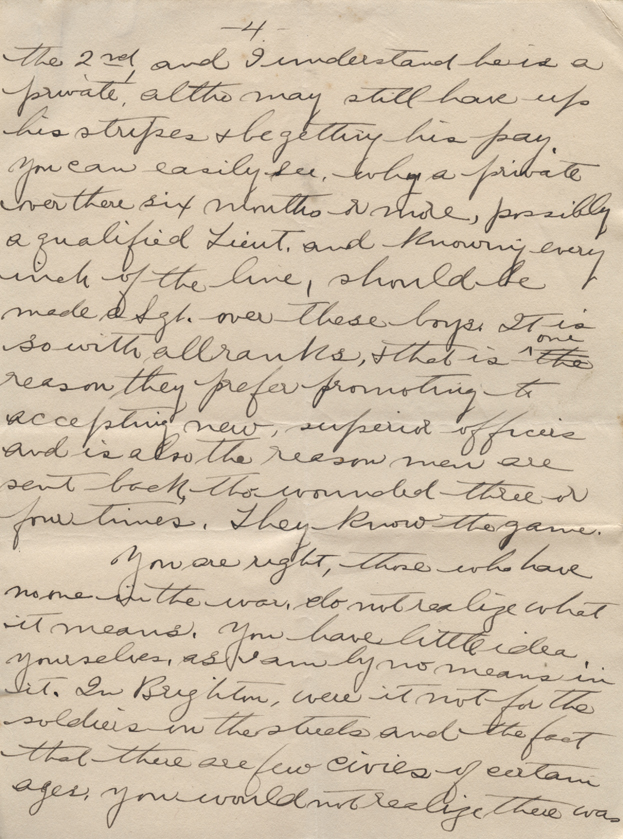 -4-
the 2nd, and I understand he is a
private, altho may still have up
his stripes & be getting his pay.
You can easily see, why a private
over there six months or more, possibly
a qualified Lieut. and knowing every
inch of the line, should be
made a Sgt. over these boys. It is
so with all ranks, & that is ^one the
reason they prefer promoting to
accepting new, superior officers
and is also the reason men are
sent back, tho wounded three or
four times. They know the game.
You are right, those who have
no one in the war, do not realize what
it means. You have little idea
yourselves, as I am by no means in
it. In Brighton, were it not for the
soldiers in the streets and the fact
that there are few civies of certain
ages, you would not realize there was